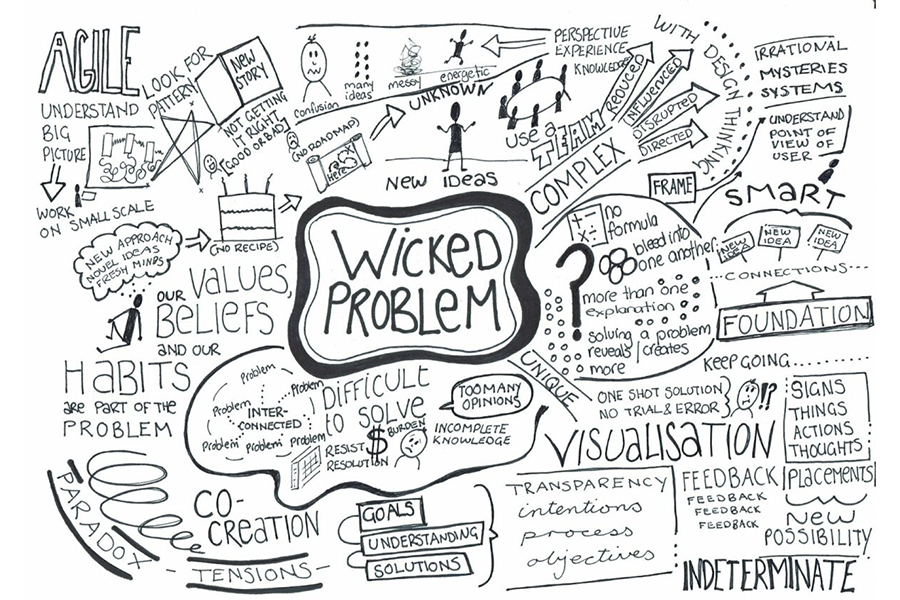 AGILE
UNDERSTAND
BIG
PICTURE
WORK
ON SMALL SCALE
LOOK FOR
PATTERN
NEW
STORY
NOT GETTING
IT RIGHT
(GOOD OR BAD)
confusion
many
ideas
messy
energetic
UNKNOWN
(NO ROADMAP)
HERE
NEW IDEAS
PERSPECTIVE
EXPERIENCE
KNOWLEDGE
USE a
TEAM
COMPLEX
REDUCED
INFLUENCED
DISRUPTED
DIRECTED
WITH DESIGN THINKING
IRRATIONAL
MYSTERIES
SYSTEMS
UNDERSTAND
POINT OF
VIEW OF
USER
FRAME
SMART
NEW IDEA
NEW IDEA
NEW IDEA
CONNECTIONS
FOUNDATION
(NO RECIPE)
NEW APPROACH
NOVEL IDEAS
FRESH MINDS
OUR VALUES,
BELIEFS
AND OUR
HABITS
ARE PART OF THE
PROBLEM
WICKED
PROBLEM
+ - × ÷
no
formula
bleed into
one another
?
more than one
explanation
solving a problem
reveals/creates
more
UNIQUE
KEEP GOING
ONE SHOT SOLUTION
NO TRIAL & ERROR
!?
SIGNS
THINGS
ACTIONS
THOUGHTS
PLACEMENTS
NEW
POSSIBILITY
Problem
Problem
Problem
Problem
Problem
Problem
INTER-
CONNECTED
DIFFICULT
to SOLVE
RESIST
RESOLUTION
$
BURDEN
TOO MANY
OPINIONS
INCOMPLETE
KNOWLEDGE
VISUALISATION
FEEDBACK
FEEDBACK
FEEDBACK
FEEDBACK
PARADOX
CO-
CREATION
TENSIONS
GOALS
UNDERSTANDING
SOLUTIONS
TRANSPARENCY
intentions
process
objectives
INDETERMINATE